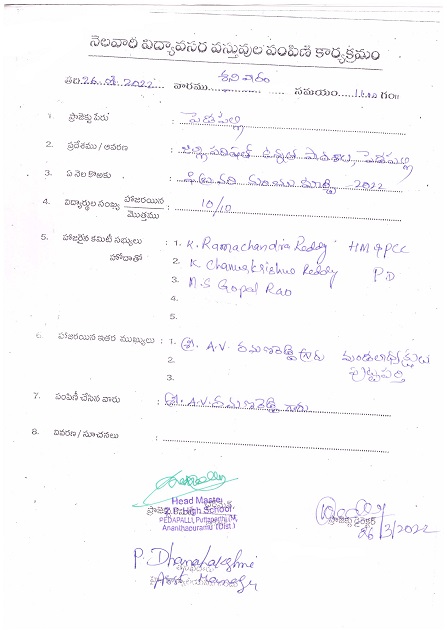 నెలవారి విద్యావసర వస్తువుల పంపిణి కార్యక్రమం
తేది: 26.03.2022 వారము శనివారం సమయం 11.00 గం॥
1. ప్రాజెక్టు పేరు : పెడపల్లి
2. ప్రదేశము / ఆవరణ : జిల్లాపరిషత్ ఉన్నత పాఠశాల, పెడపల్లి
3. ఏ నెల కొఱకు : ఫిబ్రవరి మరియు మార్చి - 2022
4. విద్యార్థుల సంఖ్య హాజరయిన / మొత్తము : 10/10
5. హాజరైన కమిటీ సభ్యులు హోదాతో : 1. K. Ramachandra Reddy HM & PCC
2. K Chennakrishna Reddy PD
3. M.S Gopal Rao
4.
5.
6. హాజరయిన ఇతర ముఖ్యులు : 1. శ్రీ. A.V రమణారెడ్డి గారు మండలాధ్యక్షులు
2. పుట్టపర్తి
3.
7. పంపిణీ చేసిన వారు : శ్రీ. A.V. రమణారెడ్డి గారు
8. వివరణ / సూచనలు :
Head Master
Z.P. High School
PEDAPALLI, Puttaparthi (M)
Ananthapuramu (Dist.)
ప్రాజెక్టు డైరెక్టర్
26/3/2022
P. Dhanalakshmi
Asst Manager